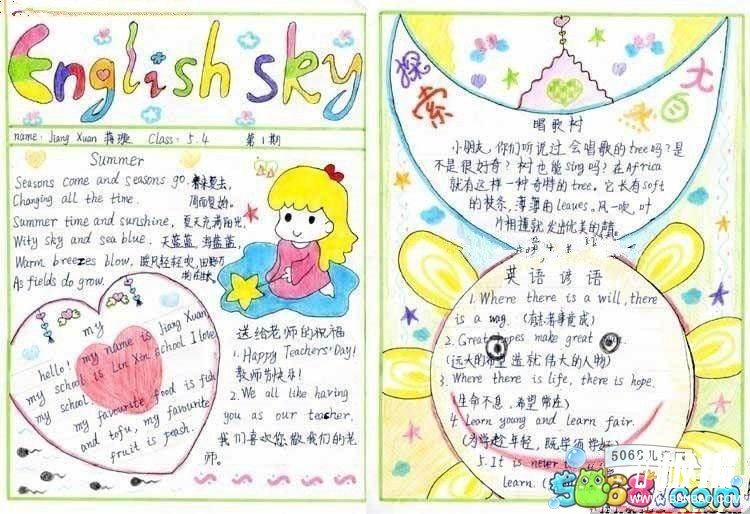 English sky
name: Jiang Xuan 蒋璇 Class: 5.4 第1期
Summer
Seasons come and seasons go, 春来夏去,
Changing all the time. 周而复始.
Summer time and sunshine, 夏天充满阳光,
Wity sky and sea blue. 天蓝蓝,海蓝蓝,
Warm breezes blow, 暖风轻轻吹,
As fields do grow.
my
hello! my name is Jiang Xuan
my school is Lin Xin school I love
my school
my favourite food is fish
and tofu, my favourite
fruit is peash.
送给老师的祝福
1. Happy Teachers' Day!
教师节快乐!
2. We all like having
you as our teacher.
我们喜欢您做我们的老
师。
探索
大
唱歌树
小朋友,你们听说过会唱歌的tree吗?是
不是很好奇?树也能sing吗?在Africa
就有这样一种奇特的tree。它长有soft
的枝条,薄薄的leaues。风一吹,叶
片相撞就发出优美的
英语谚语
1. Where there is a will, there
is a way. (有志者事竟成)
2. Great hopes make great
(远大的希望造就伟大的人物)
3. Where there is life, there is hope.
(生命不息,希望常在)
4. Learn young and learn fair.
(为学趁年轻,既学须学好)
5. It is never
learn.
5068儿
5068.com
WWW.BANBAO.COM